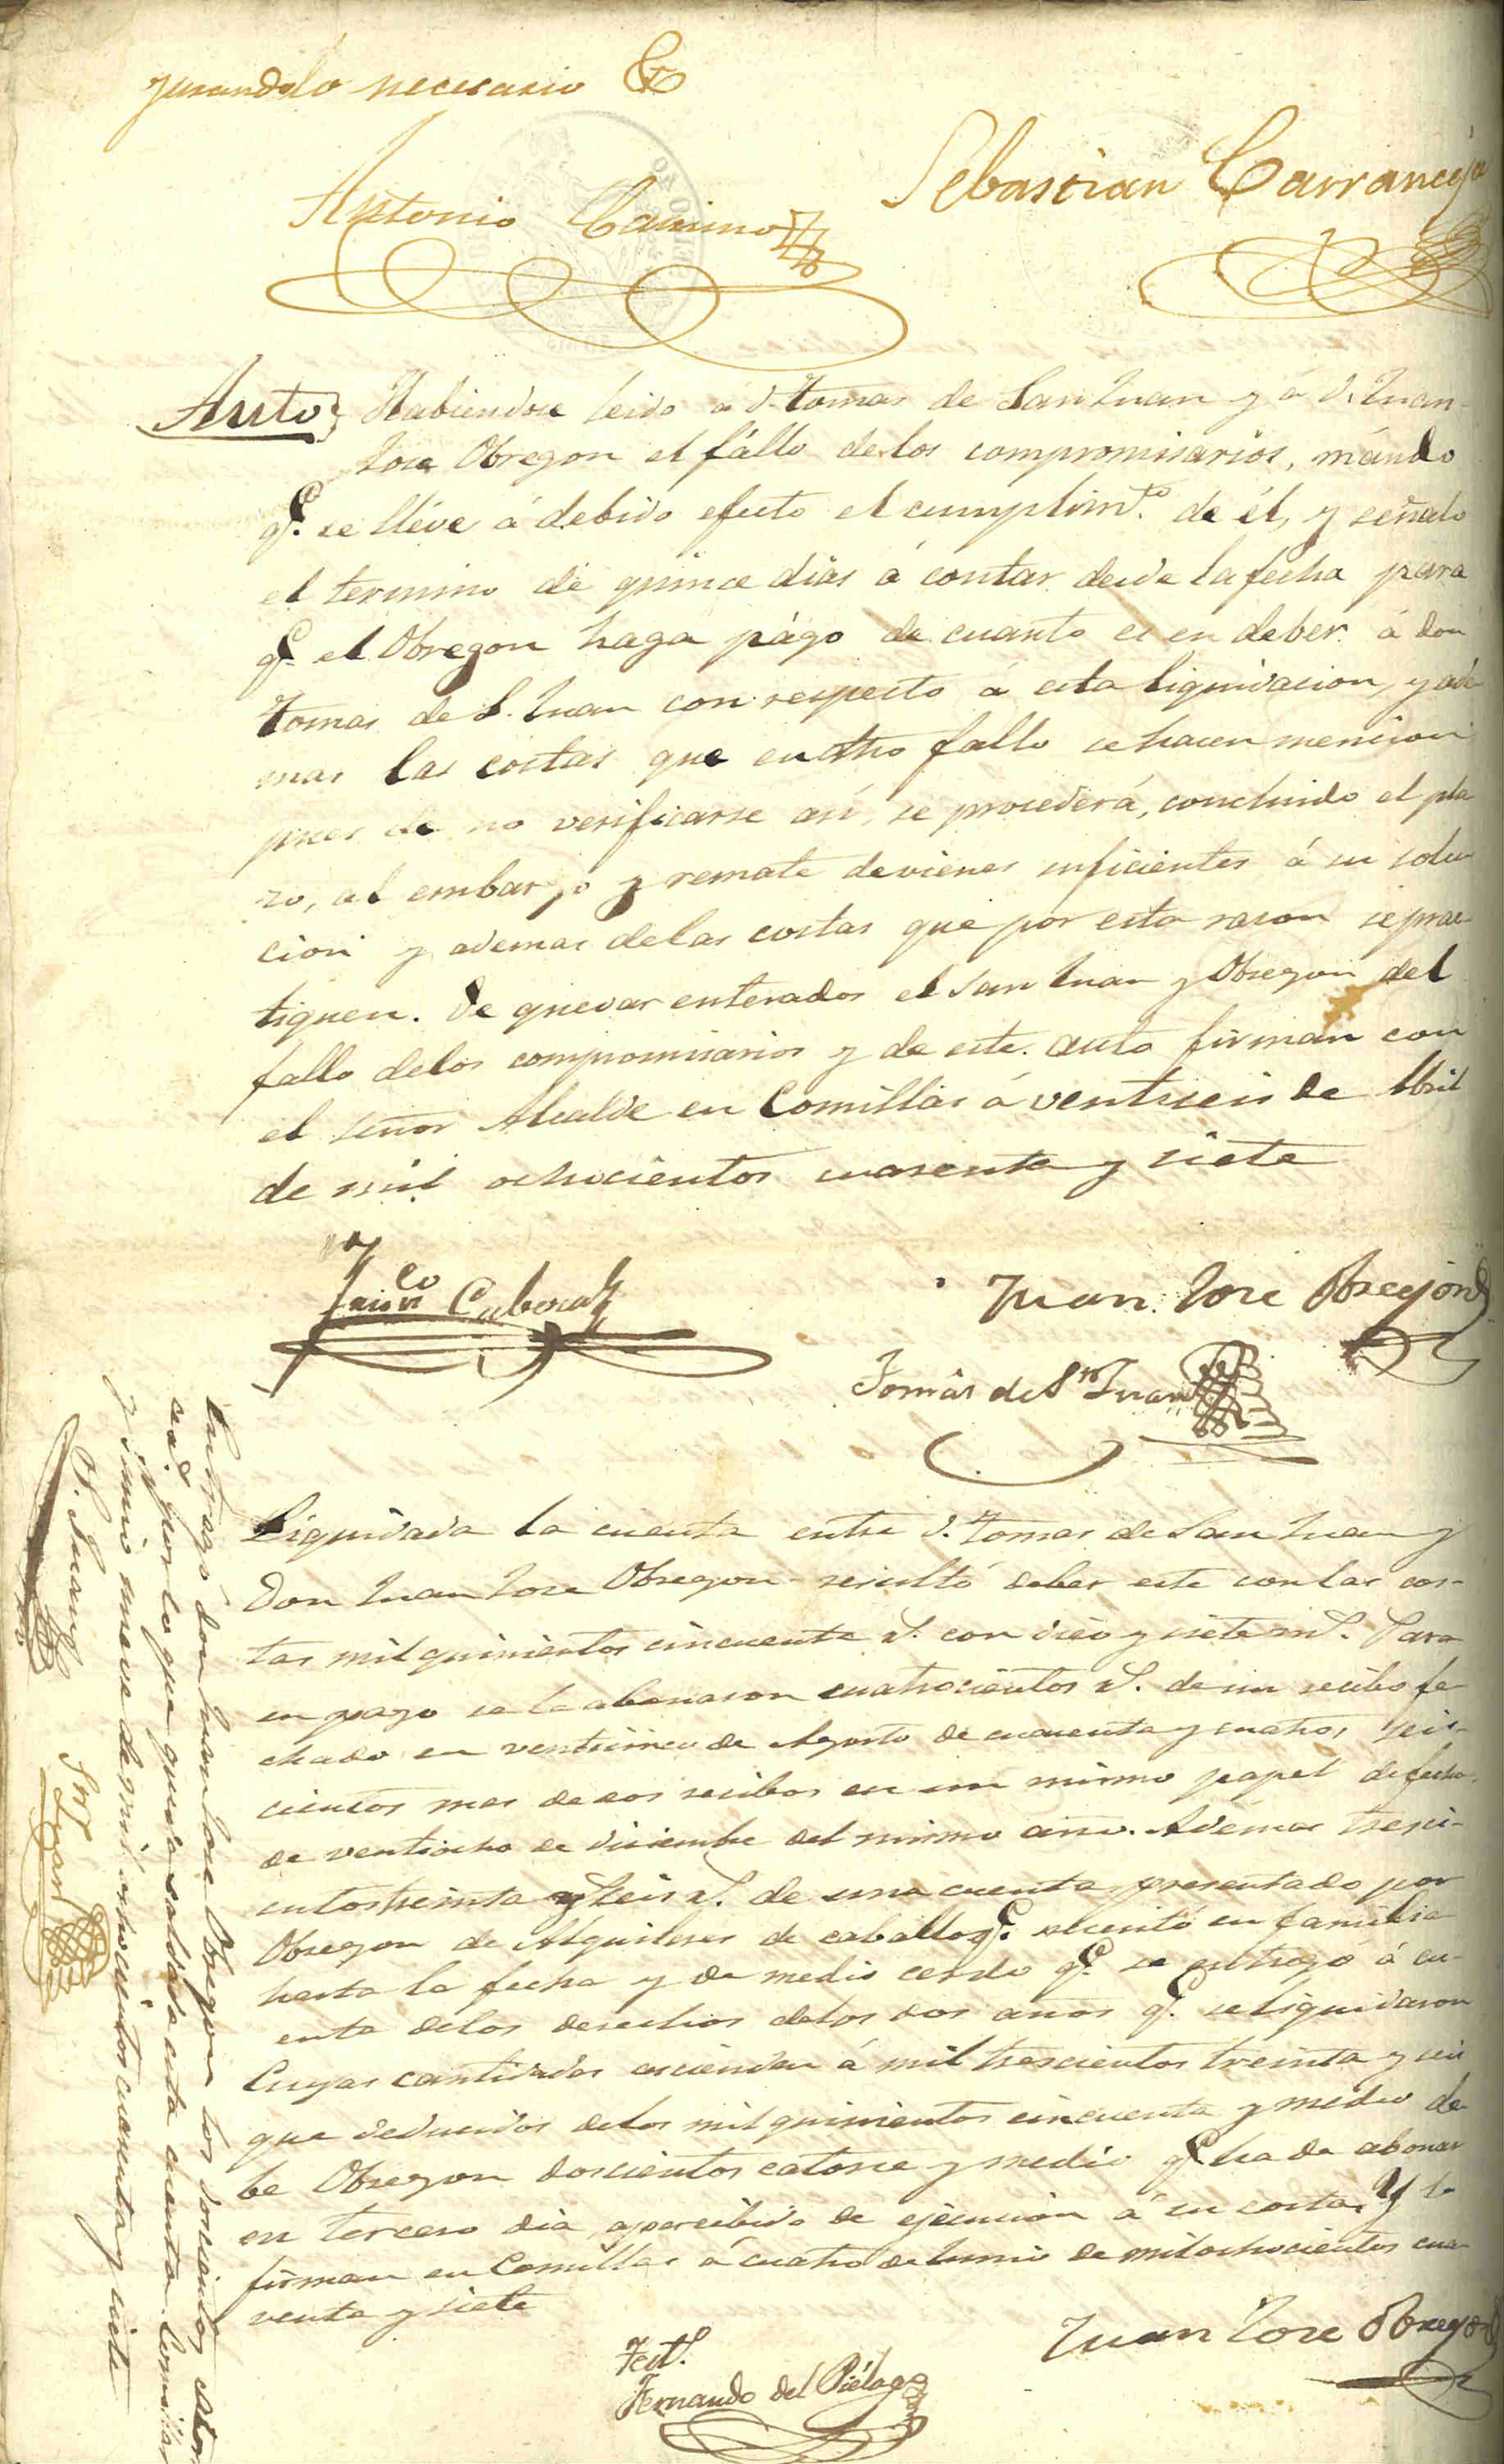 jurandolo necesario &
Antonio Camino
Sebastian Carranceja
Auto} Habiendose leido á d. Tomas de San Juan y á d. Juan
Jose Obregon el fállo de los compromisarios, mándo
qe. se lléve á debido efecto el cumplimto. de él, y señalo
el termino de quince dias á contar desde la fecha para
qe. el Obregon haga págo de cuanto es en deber á don
Tomas de S. Juan con respecto á esta liquidacion, y ade
mas las costas que en dho fallo se hacen mencion
pues de no verificarse asi, se procederá, concluido el pla
zo, al embargo y remate de vienes suficientes á su solu
cion y ademas de las costas que por esta rason se prac
tiquen. De quedar enterados el San Juan y Obregon del
fallo delos compromisarios y de este auto firman con
el señor Alcalde en Comillas á ventiseis de Abril
de mil ochocientos cuarenta y siete
Juan Jose Obregon
Tomás de Sn Juan
Liquidada la cuenta entre d. Tomas de San Juan y
Don Juan Jose Obregon resultó deber este con las cos-
tas mil quinientos cincuenta rs. con diez y siete ms. Para
en pago se le abonaron cuatrocientos rs. de un recibo fe
chado en venticinco de Agosto de cuarenta y cuatro, seis-
cientos mas de dos recibos en un mismo papel de fecha
de ventiocho de diciembre del mismo año. Ademas tresci-
entos treinta y seis rs. de una cuenta presentado por
Obregon de Alquileres de caballos qe. en familia
hasta la fecha y de medio cerdo qe. se entregó á cu-
enta delos derechos delos dos años qe. se liquidaron
Cuyas cantidades ascienden á mil trescientos treinta y seis
que deducidos delos mil quinientos cincuenta y medio de
be Obregon doscientos catorce y medio qe. ha de abonar
en tercero dia apercibido de ejecucion á su costa. Y lo
firman en Comillas á cuatro de Junio de mil ochocientos cua
renta y siete
Juan Jose Obregon
Testo.
Fernando del Piélago
Entregó don Juan Jose Obregon los doscientos cator
ce y por lo que queda saldada esta cuenta. Comillas
y Junio nueve de mil ochocientos cuarenta y siete
Sn Juan